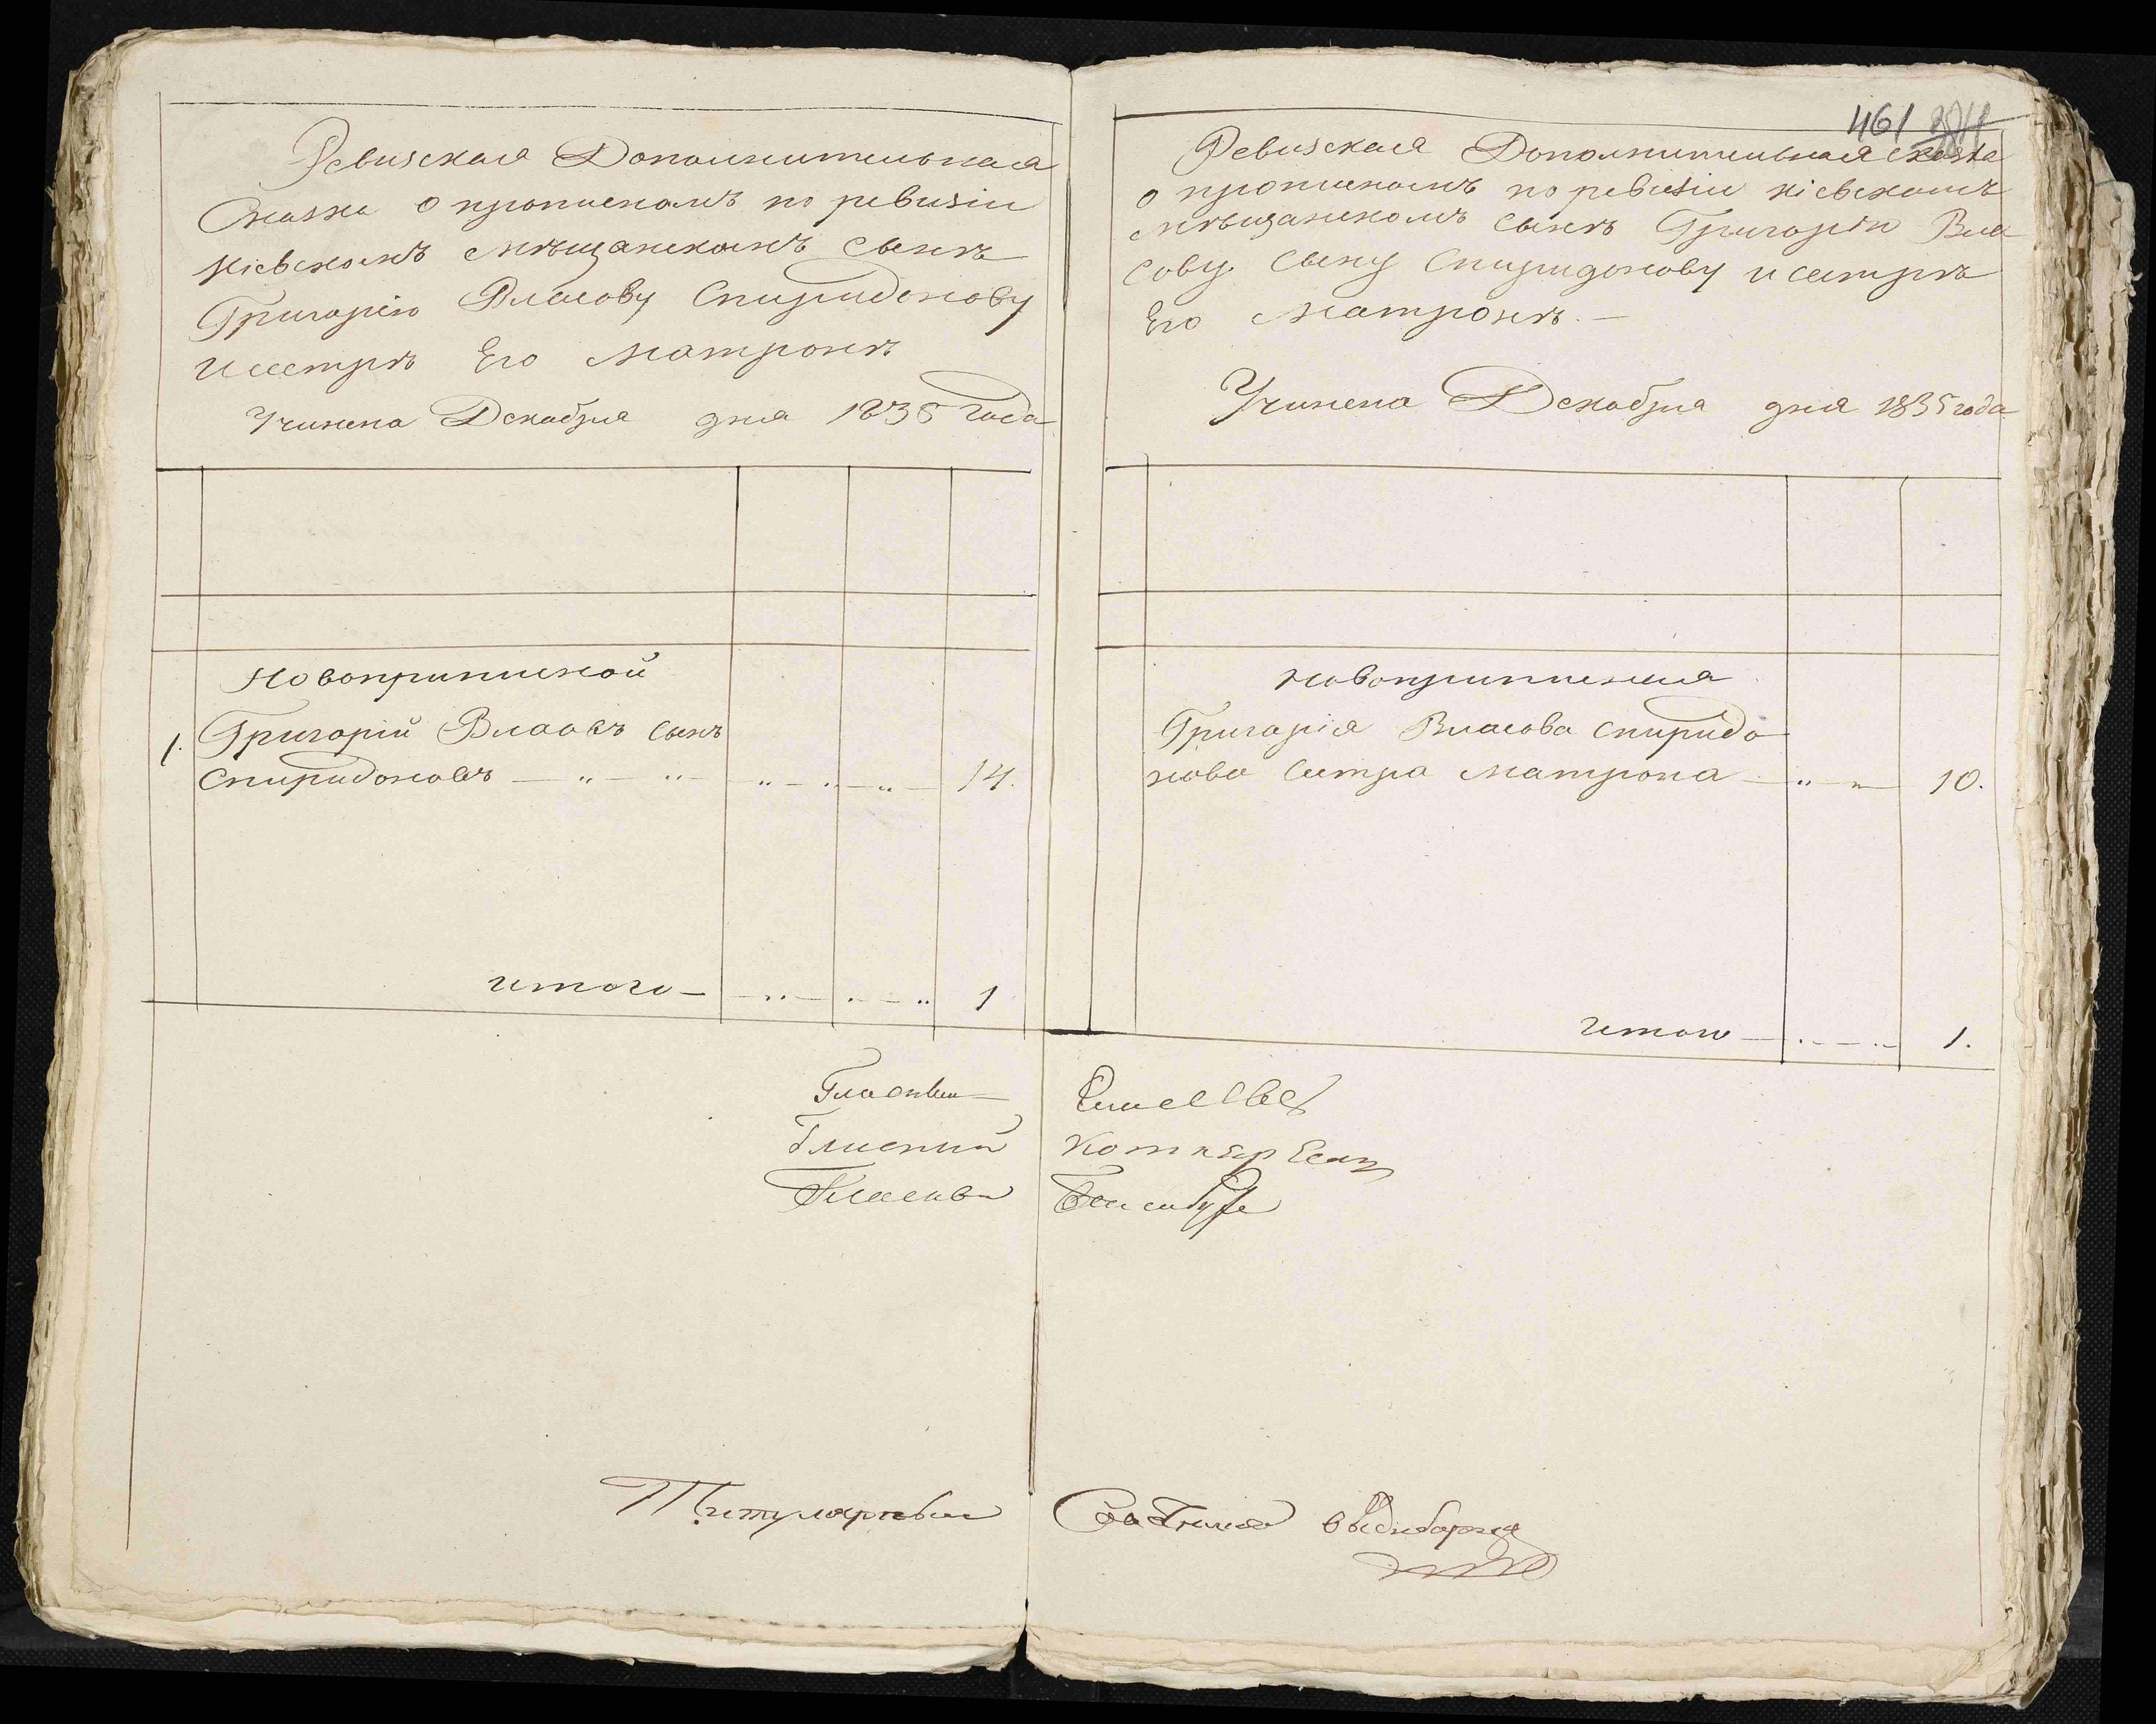 Ревизская Дополнительная
Сказка о прописномъ по ревизіи
Кіевскомъ мѣщанскомъ сынѣ
Григорію Власову Спиридонову
и сестрѣ Его Матронѣ
Учинена Декабря дня 1835 года
Новоприписной
1. Григорій Власовъ сынъ
Спиридоновъ — „ — „ — „ — „ — „ — 14.
итого — „ — „ — „ 1
461
Ревизская Дополнительная сказка
о прописномъ по ревизіи кіевскомъ
мѣщанскомъ сынѣ Григорію Вла
сову сыну Спиридонову и сестрѣ
Его Матронѣ. —
Учинена Декабря дня 1835 года
новоприписная
Григорія Власова Спиридо
нова сестра Матрона — „ — „ — 10.
итого — „ — „ — 1.
Гласный
Гласный
Гласный
Титулярный